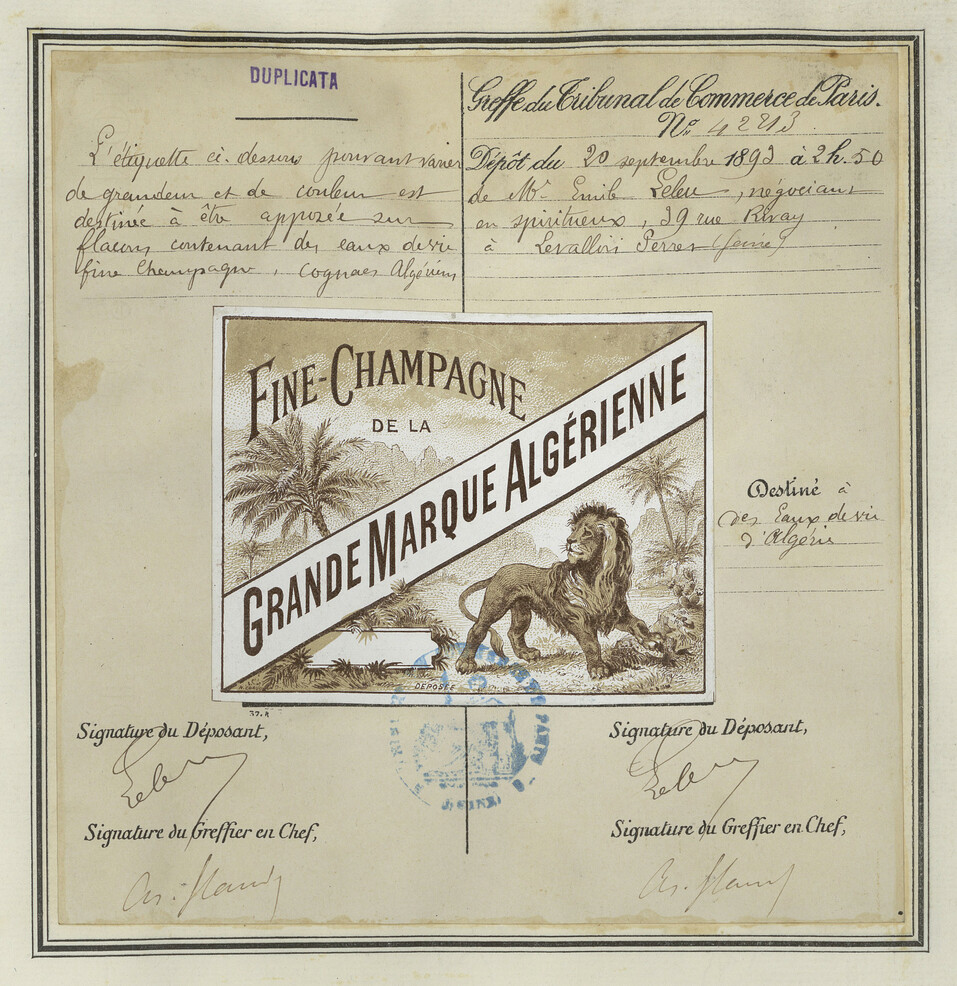 DUPLICATA
L'étiquette ci-dessous pouvant varier
de grandeur et de couleur est
destinée à être apposée sur
flacons contenant des eaux de vie
fine Champagne, cognacs Algériens
Greffe du Tribunal de Commerce de Paris.
No. 42213.
Dépôt du 20 septembre 1893 à 2h.50
de Mr. Emile Leleu, négociant
en spiritueux, 39 rue Rivay
à Levallois Perret (Seine)
FINE-CHAMPAGNE
DE LA
GRANDE MARQUE ALGÉRIENNE
DÉPOSÉE
Destiné à
des Eaux de vie
d'Algérie
37.R
Signature du Déposant,
Leleu
Signature du Greffier en Chef,
Signature du Déposant,
Leleu
Signature du Greffier en Chef,